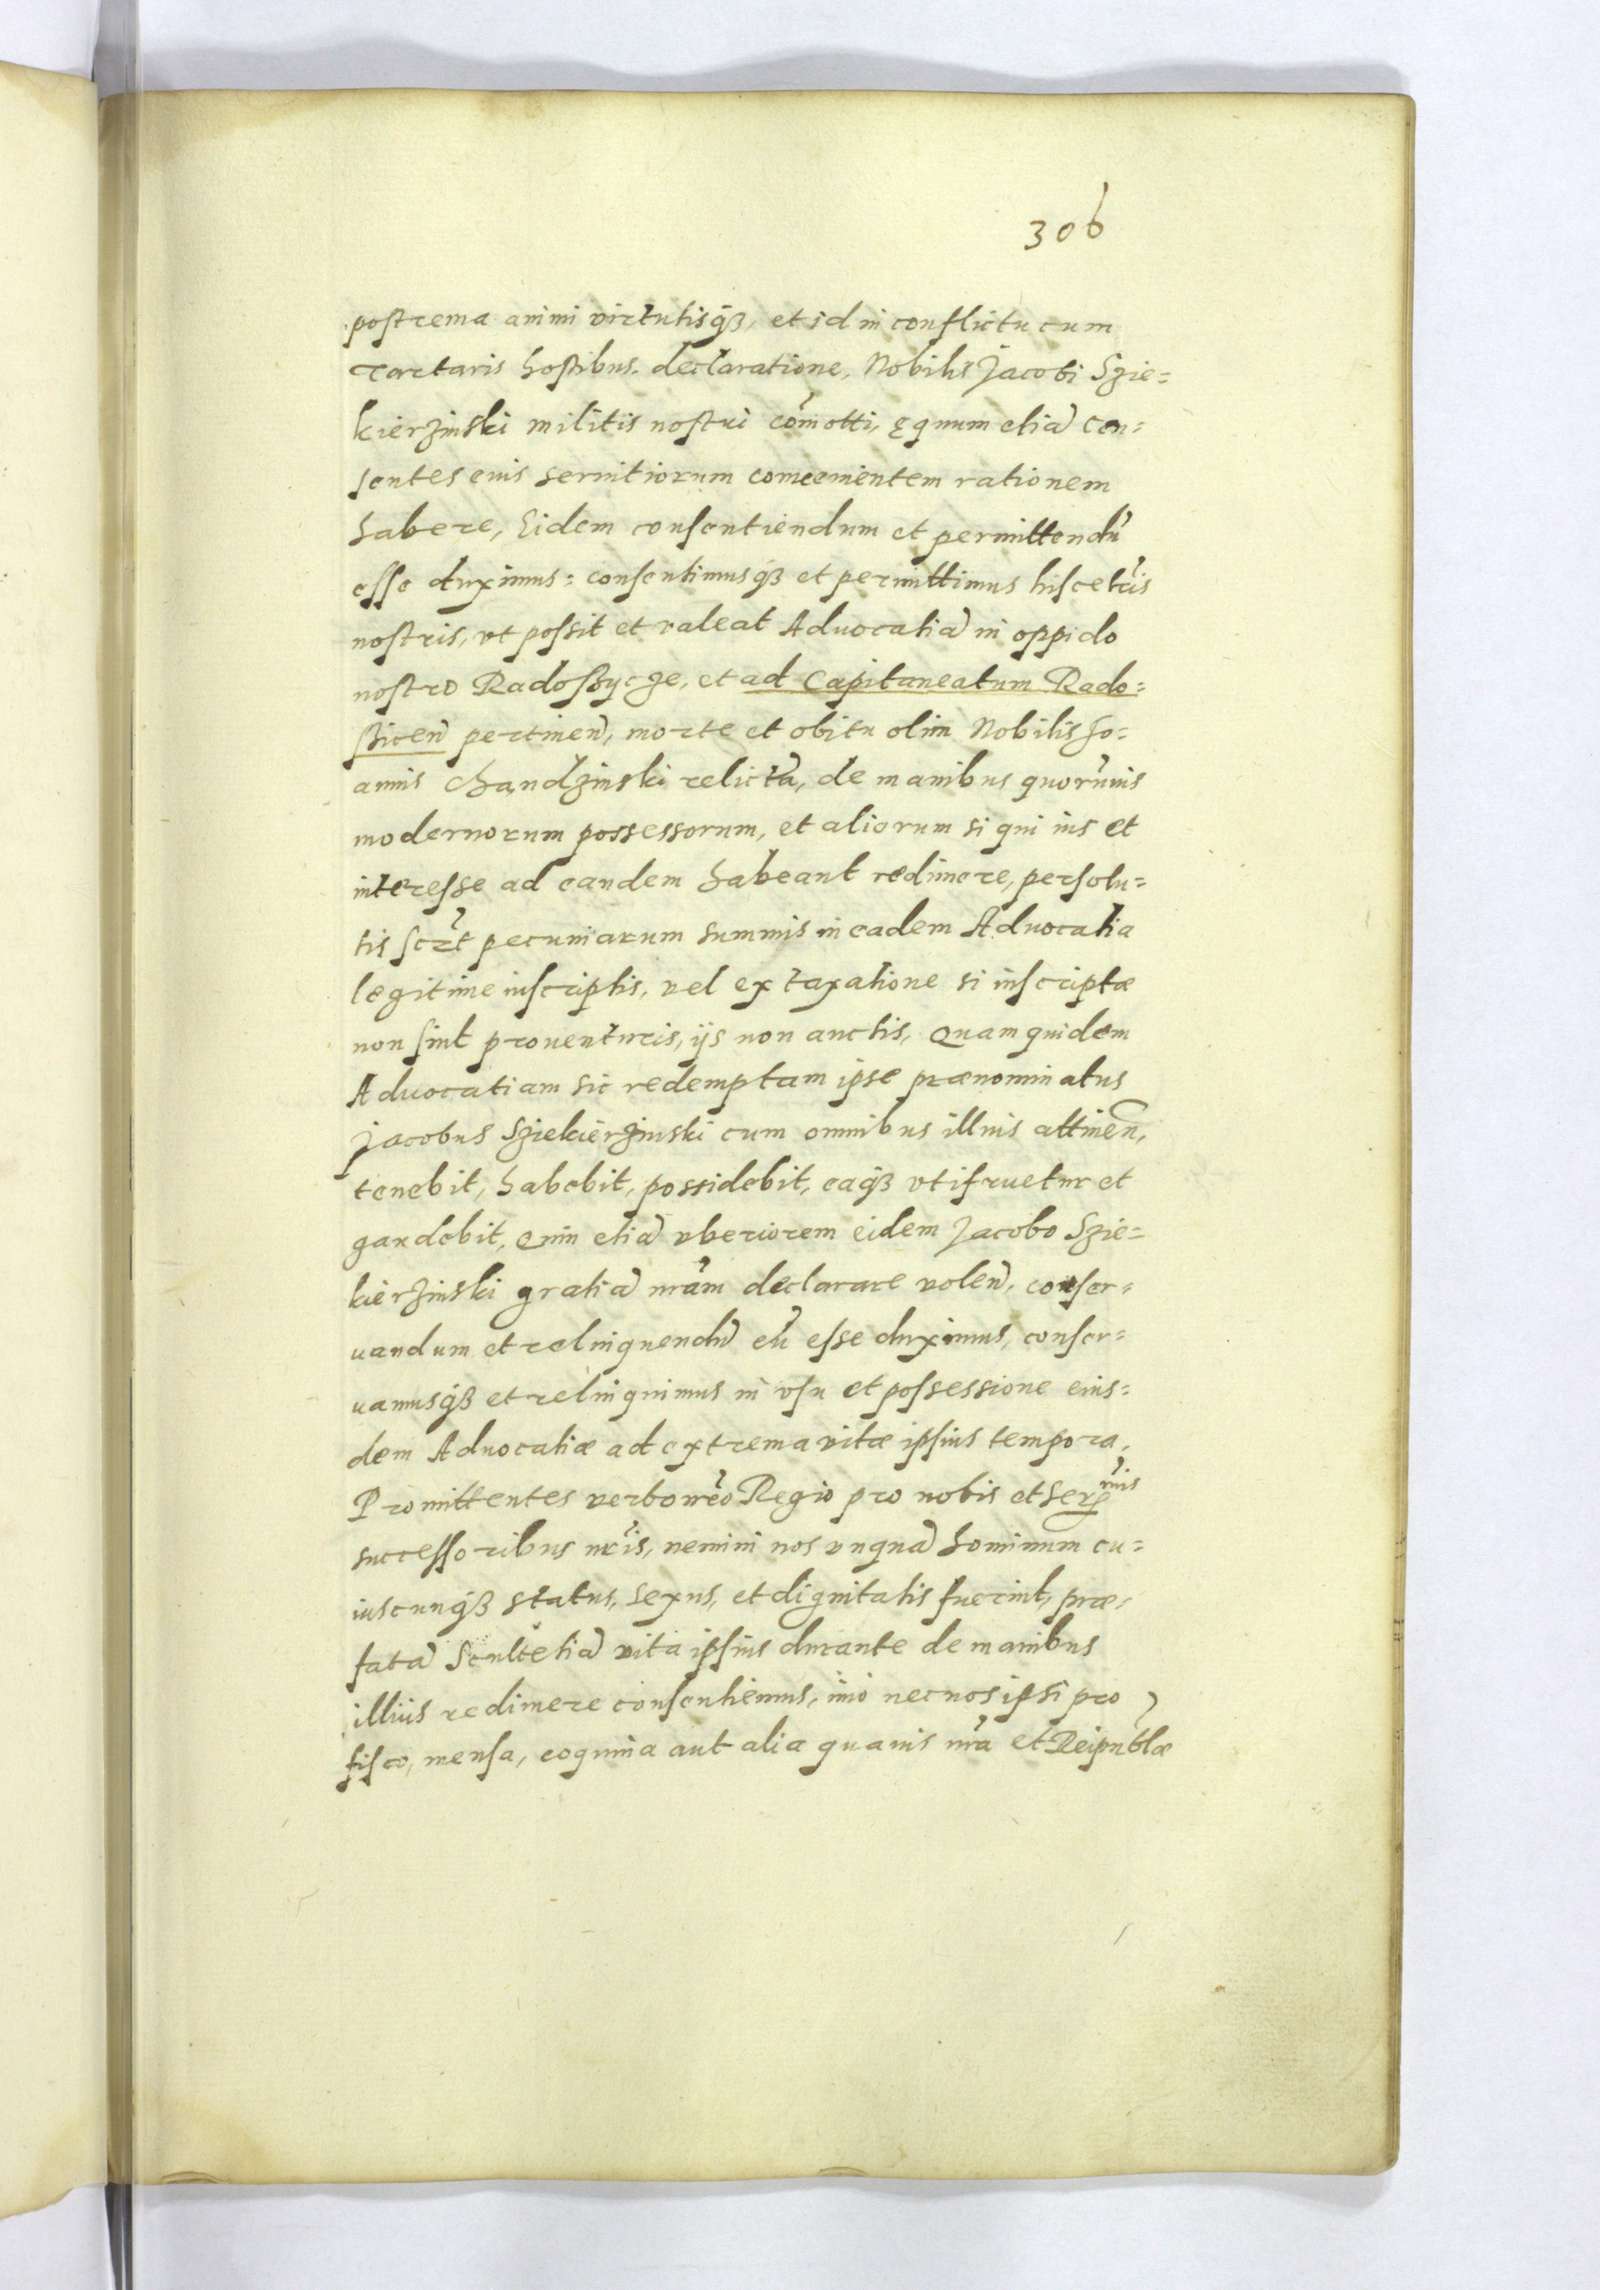 306
postrema animi virtutisqȝ, et id in conflictu cum
Tartaris hostibus declaratione, Nobilis Jacobi Szie=
kierzinski militis nostri com̃otti, ęquum etiã cen=
sentes euis seruitiorum conuenientem rationem
habere, Eidem consentiendum et permittendũ
esse duximus: consentimusqȝ et permittimus hisce lr̃is
nostris, vt possit et valeat Aduocatiã in oppido
nostro Radoszycze, et ad Capitaneatum Rado=
szicen̄ pertinen̄, morte et obitu olim Nobilis Jo=
annis Chandzinski relictã, de manibus quorũuis
modernorum possessorum, et aliorum si qui ius et
interesse ad eandem habeant redimere, persolu=
tis scr̃t pecuniarum summis in eadem Aduocatia
legitime inscriptis, vel ex taxatione si inscriptæ
non sint prouenturis, ijs non auctis, Quam quidem
Aduocatiam sic redemptam ipse prænominatus
Jacobus Sziekierzinski cum omnibus illius attinen̄,
tenebit, habebit, possidebit, eaqȝ vtifruetur et
gaudebit, Quin etiã vberiorem eidem Jacobo Szie=
kierzinski gratiã nr̃am declarare volen̄, conser=
uandum et relinquendũ eũ esse duximus, conser=
uamusqȝ et relinquimus in vsu et possessione eius=
dem Aduocatiæ ad extrema vitæ ipsius tempora,
Promittentes verbo nr̃o Regio pro nobis et Ser̃mis
successoribus nr̃is, nemini nos vnquã hominum cu=
iuscunqȝ status, sexus, et dignitatis fuerint, præ=
fatã Scultetiã vita ipsius durante de manibus
illius redimere consentiemus, imo nec nos ipsi pro
fisco, mensa, coquina aut alia quauis nr̃a et Reipublæ